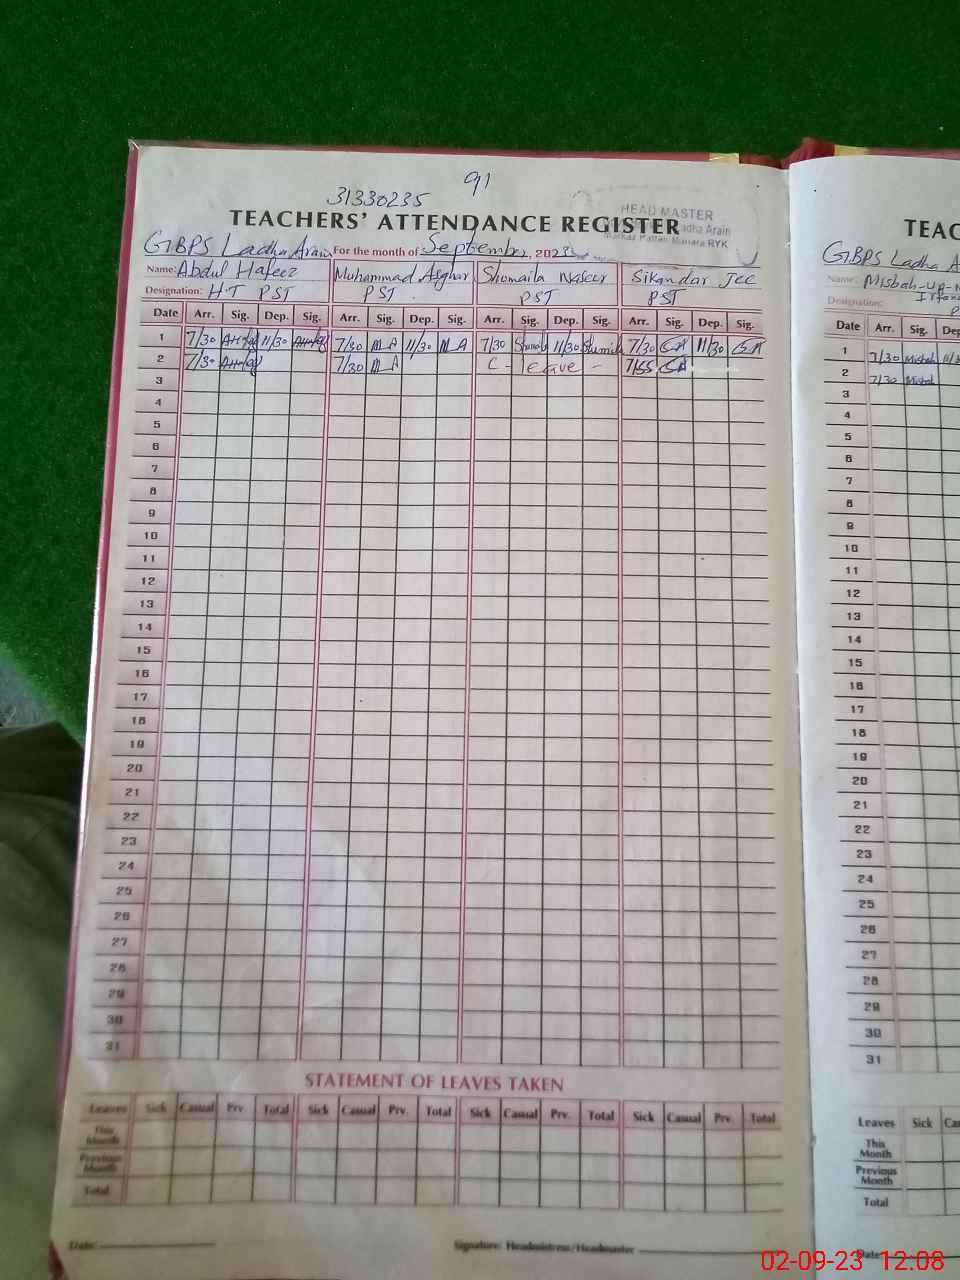 91
31330235
HEAD MASTER
TEACHERS' ATTENDANCE REGISTER
adha Arain
RYK
GBPS Ladha Arain For the month of September, 2023
Name: Abdul Hafeez Muhammad Asghar Shomaila Naseer Sikandar Jee
Designation: H.T PST PST. PST PST
Date Arr. Sig. Dep. Sig. Arr. Sig. Dep. Sig. Arr. Sig. Dep. Sig. Arr. Sig. Dep. Sig.
1 7/30 11/30 7/30 MA 11/30 MA 7/30 11/30 7/30 11/30
2 7/30 7/30 MA C - leave - 7/55
3
4
5
6
7
8
9
10
11
12
13
14
15
16
17
18
19
20
21
22
23
24
25
26
27
28
29
30
31
STATEMENT OF LEAVES TAKEN
Leaves Sick Casual Prv. Total Sick Casual Prv. Total Sick Casual Prv. Total Sick Casual Prv. Total
This Month
Previous Month
Total
Date: Signature: Headmistress/Headmaster
TEAC
GBPS Ladha A
Name: Misbah-up-N
Designation:
Date Arr. Sig. Dep
1 7/30 Misbah 11/3
2 7/30 Misbah
3
4
5
6
7
8
9
10
11
12
13
14
15
16
17
18
19
20
21
22
23
24
25
26
27
28
29
30
31
Leaves Sick Ca
This Month
Previous Month
Total
Date:
02-09-23 12.08